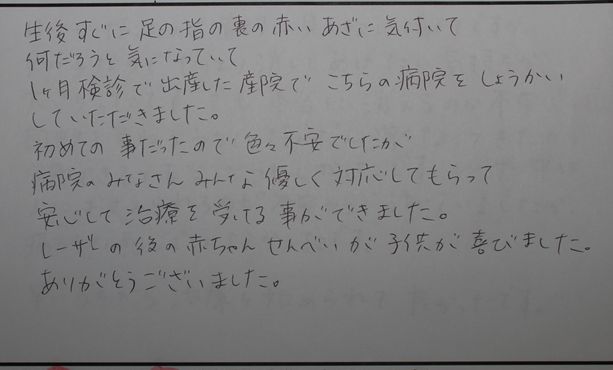 生後すぐに足の指の裏の赤いあざに気付いて
何だろうと気になっていて
1ヶ月検診で出産した産院でこちらの病院をしょうかい
していただきました。
初めての事だったので色々不安でしたが
病院のみなさんみんな優しく対応してもらって
安心して治療を受ける事ができました。
レーザーの後の赤ちゃんせんべいが子供が喜びました。
ありがとうございました。